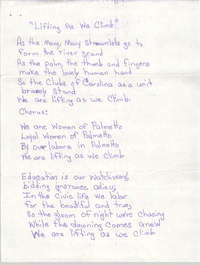 "Lifting As We Climb"
As the many, many streamlets go to
form the river grand
As the palm, the thumb and fingers
make the lovely human hand
So the Clubs of Carolina as a unit
bravely stand
We are lifting as we climb.
Chorus:
We are Women of Palmetto
Loyal Women of Palmetto
By our labors in Palmetto
We are lifting as we climb
Education is our watchword,
bidding ignorance adieu,
In the Civic life we labor
for the beautiful and true,
So the gloom of night were chasing
While the dawning comes anew
We are lifting as we climb